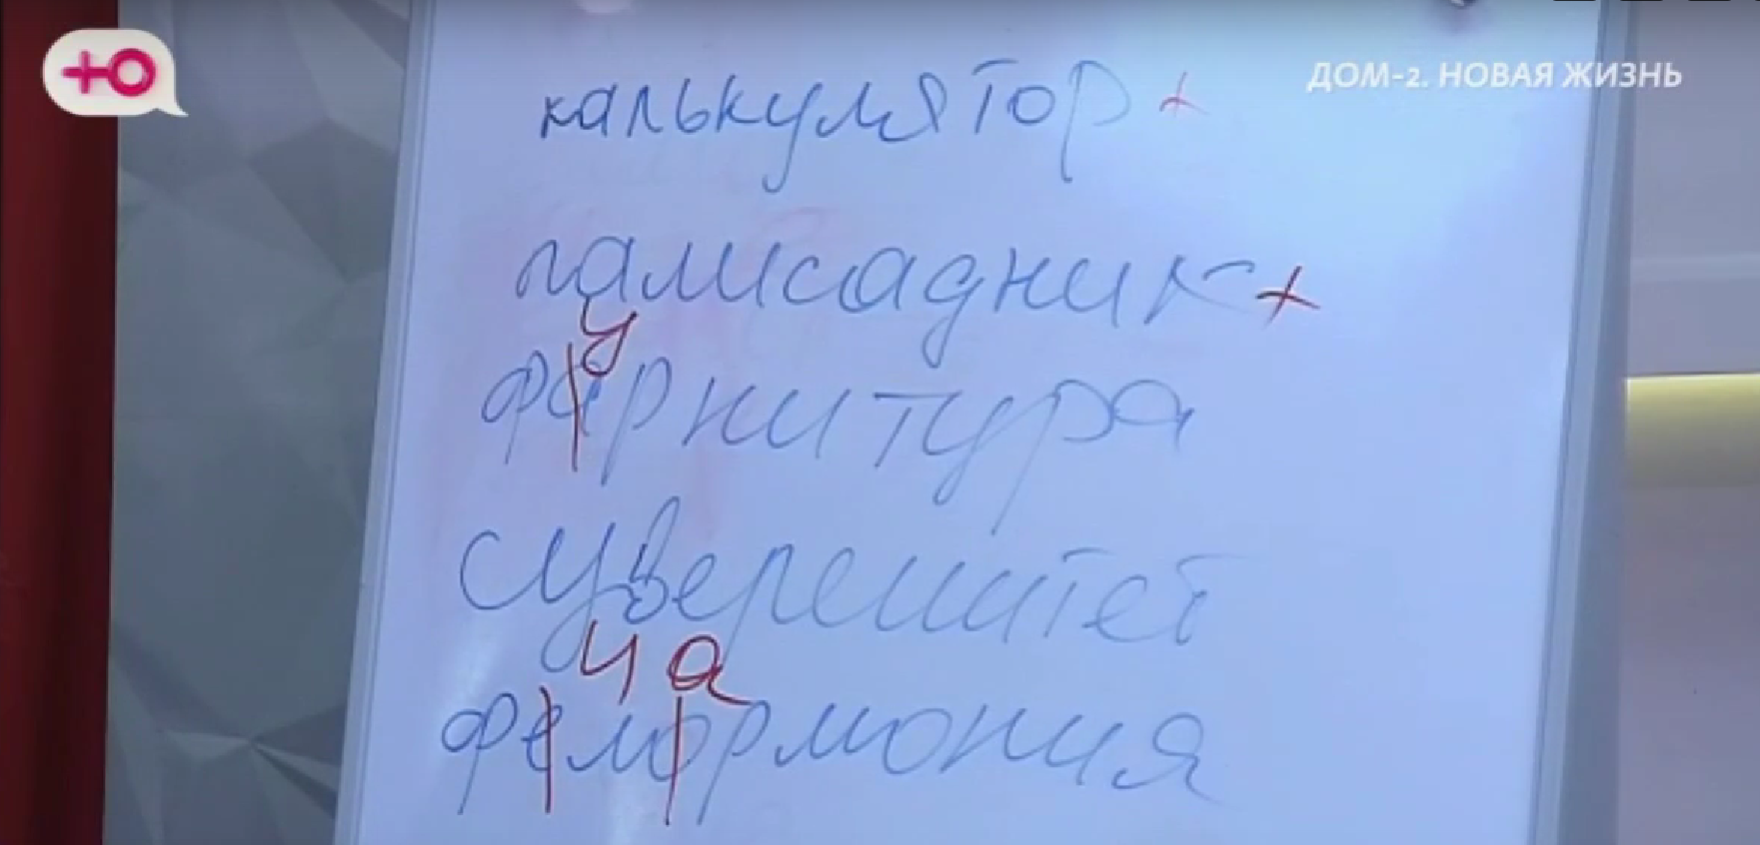 Ю
ДОМ-2. НОВАЯ ЖИЗНЬ
калькулятор +
палисадник +
у
фарнитура
суверенитет
и а
фелормония